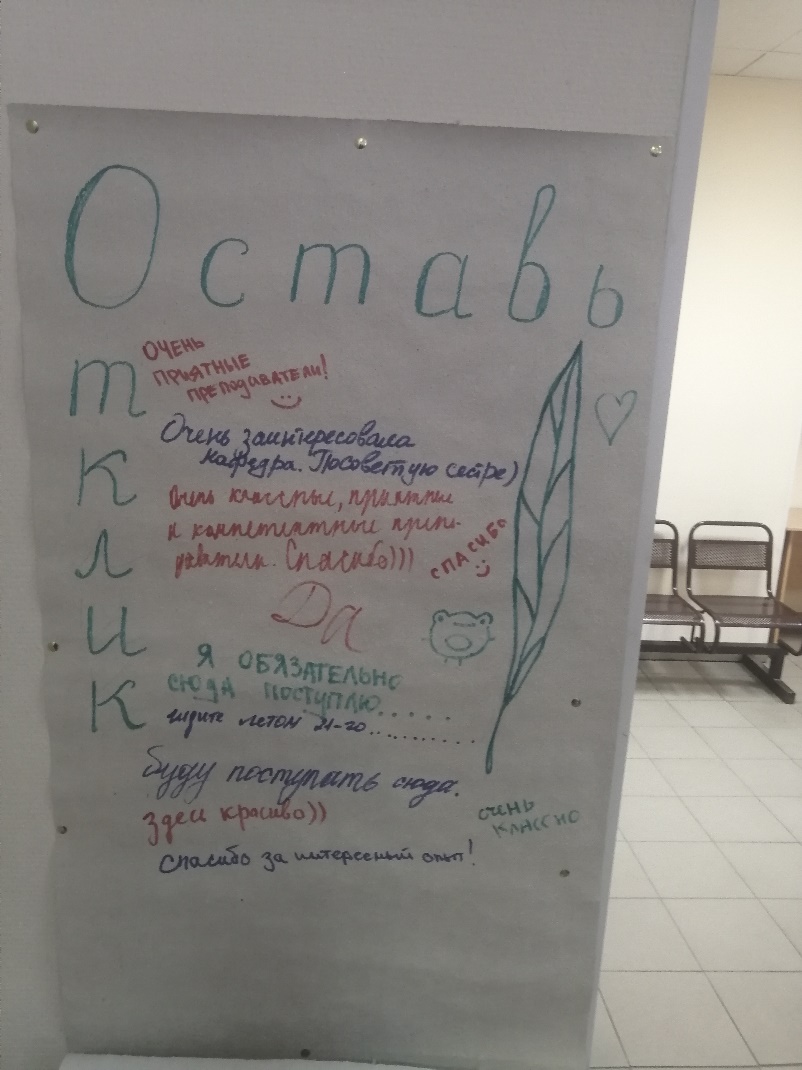 Оставь
Отклик
ОЧЕНЬ
ПРИЯТНЫЕ
ПРЕПОДАВАТЕЛИ!
Очень заинтересовала
кафедра. Посоветую сестре)
Очень классные, приятные
и компетентные препо-
даватели. Спасибо)))
СПАСИБО
Да
Я ОБЯЗАТЕЛЬНО
СЮДА ПОСТУПЛЮ.....
ждите летом 21-го..........
Буду поступать сюда.
Здеи красиво))
ОЧЕНЬ
КЛАССНО
Спасибо за интересный опыт!